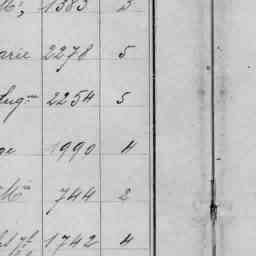 1383 5
arie 2278 5
Aug. 2254 5
ge 1990 4
Mie 744 2
1742 4